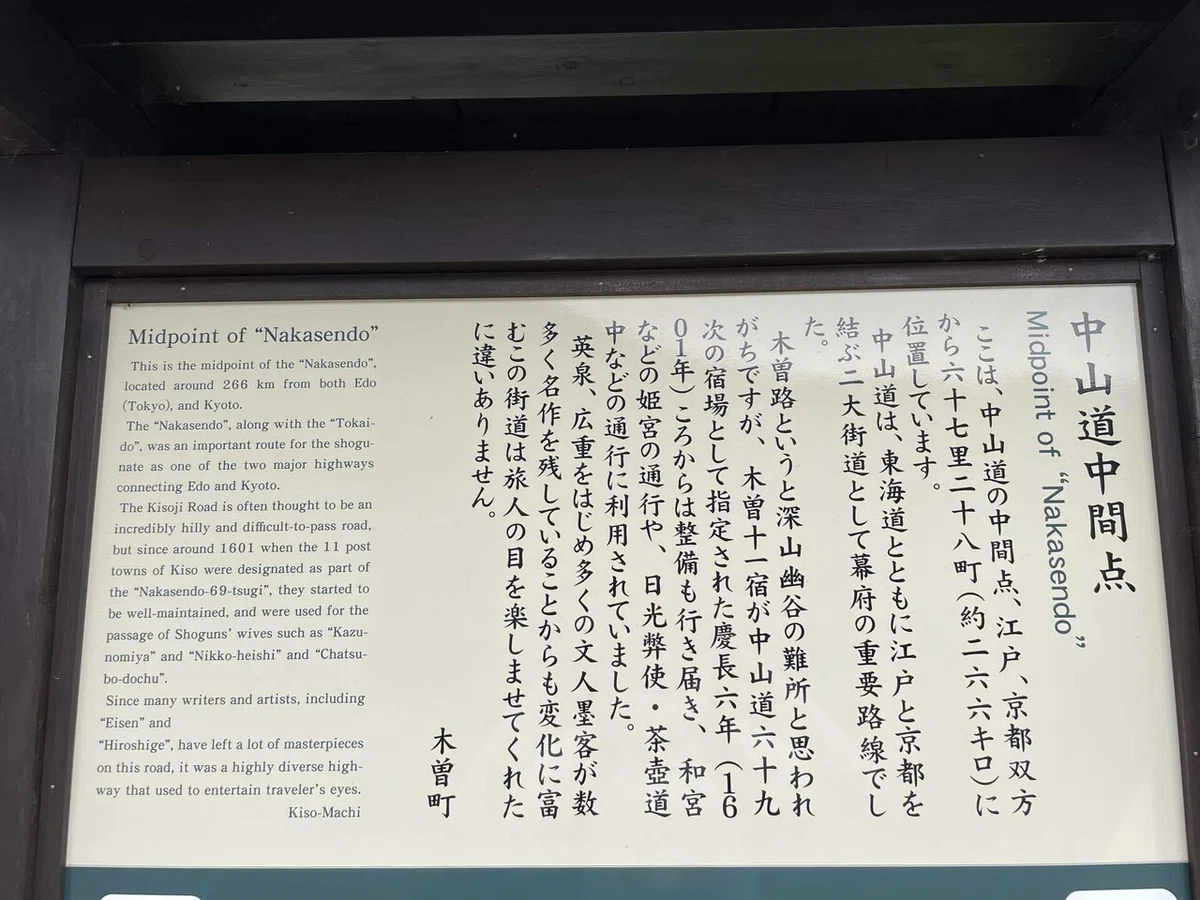 中山道中間点
Midpoint of “Nakasendo”
ここは、中山道の中間点、江戸、京都双方
から六十七里二十八町（約二六六キロ）に
位置しています。
中山道は、東海道とともに江戸と京都を
結ぶ二大街道として幕府の重要路線でし
た。
木曽路というと深山幽谷の難所と思われ
がちですが、木曽十一宿が中山道六十九
次の宿場として指定された慶長六年（16
01年）ころからは整備も行き届き、和宮
などの姫宮の通行や、日光弊使・茶壺道
中などの通行に利用されていました。
英泉、広重をはじめ多くの文人墨客が数
多く名作を残していることからも変化に富
むこの街道は旅人の目を楽しませてくれた
に違いありません。
木曽町
Midpoint of “Nakasendo”
This is the midpoint of the “Nakasendo”,
located around 266 km from both Edo
(Tokyo), and Kyoto.
The “Nakasendo”, along with the “Tokai-
do”, was an important route for the shogu-
nate as one of the two major highways
connecting Edo and Kyoto.
The Kisoji Road is often thought to be an
incredibly hilly and difficult-to-pass road,
but since around 1601 when the 11 post
towns of Kiso were designated as part of
the “Nakasendo-69-tsugi”, they started to
be well-maintained, and were used for the
passage of Shoguns’ wives such as “Kazu-
nomiya” and “Nikko-heishi” and “Chatsu-
bo-dochu”.
Since many writers and artists, including
“Eisen” and
“Hiroshige”, have left a lot of masterpieces
on this road, it was a highly diverse high-
way that used to entertain traveler’s eyes.
Kiso-Machi